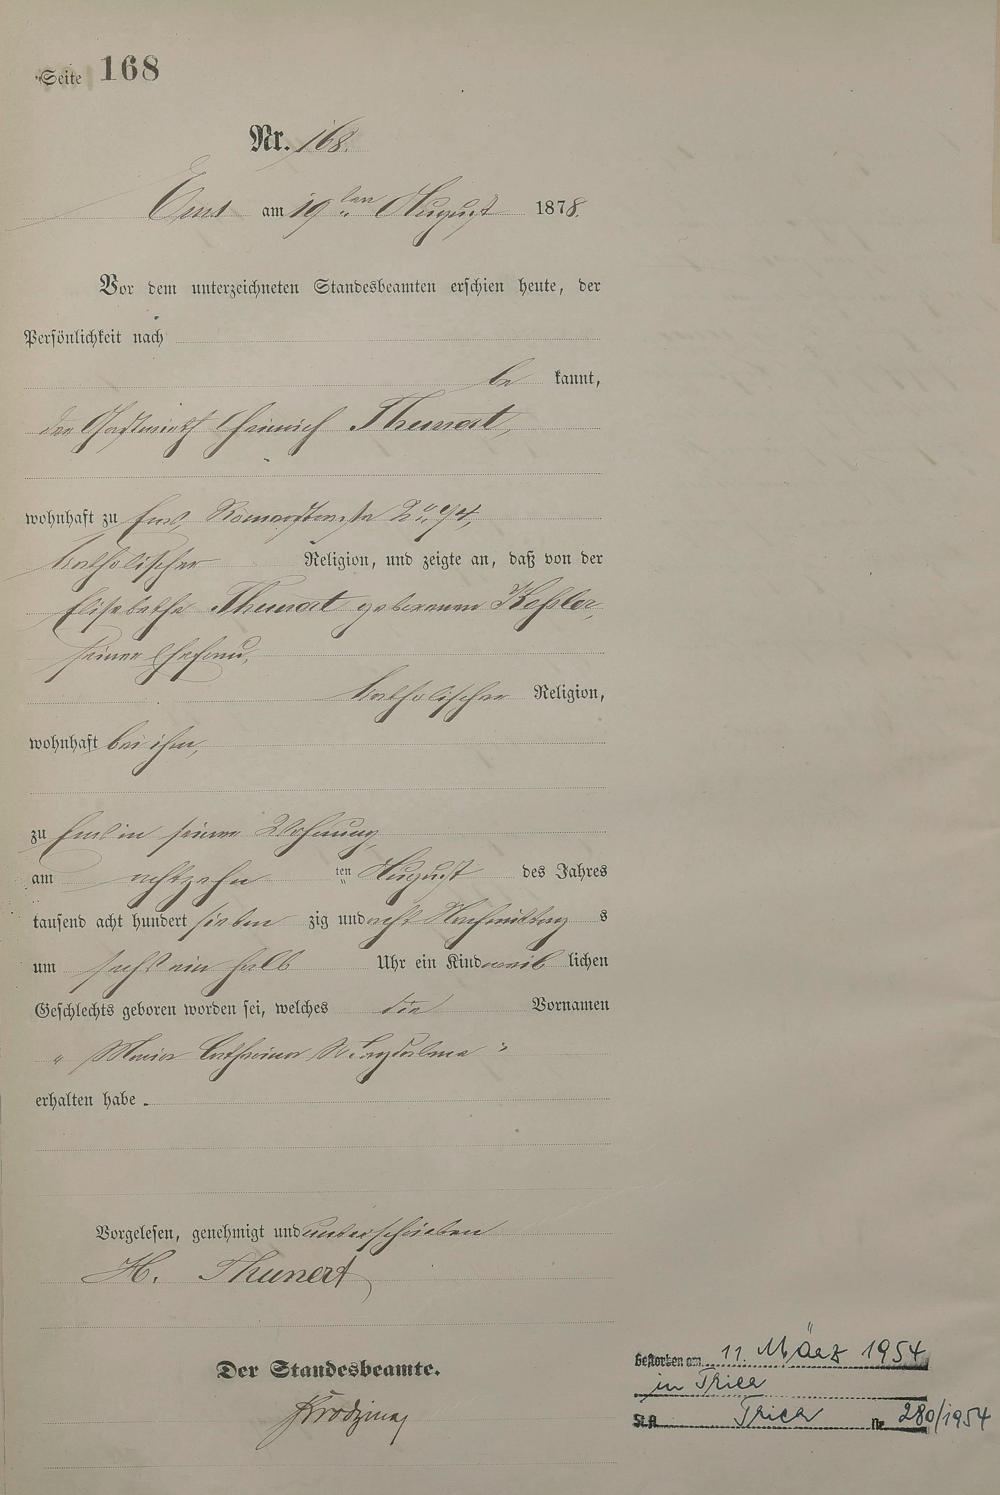 Seite 168
Nr. 168.
Ems am 19ten August 1878.
Vor dem unterzeichneten Standesbeamten erschien heute, der
Persönlichkeit nach
be kannt,
der Gastwirth Heinrich Thunert,
wohnhaft zu Ems, Römerstrasse
katholischer Religion, und zeigte an, daß von der
Elisabetha Thunert geborenen Kessler,
seiner Ehefrau,
katholischer Religion,
wohnhaft bei ihm,
zu Ems in seiner Wohnung
am achtzehn ten August des Jahres
tausend acht hundert sieben zig und acht Nachmittag s
um sechs ein halb Uhr ein Kind weib lichen
Geschlechts geboren worden sei, welches die Vornamen
„ Maria Catharina Magdalena "
erhalten habe.
Vorgelesen, genehmigt und unterschrieben
H. Thunert
Der Standesbeamte.
Gestorben am 11. März 1954
in Trier
St.A. Trier Nr. 280/1954